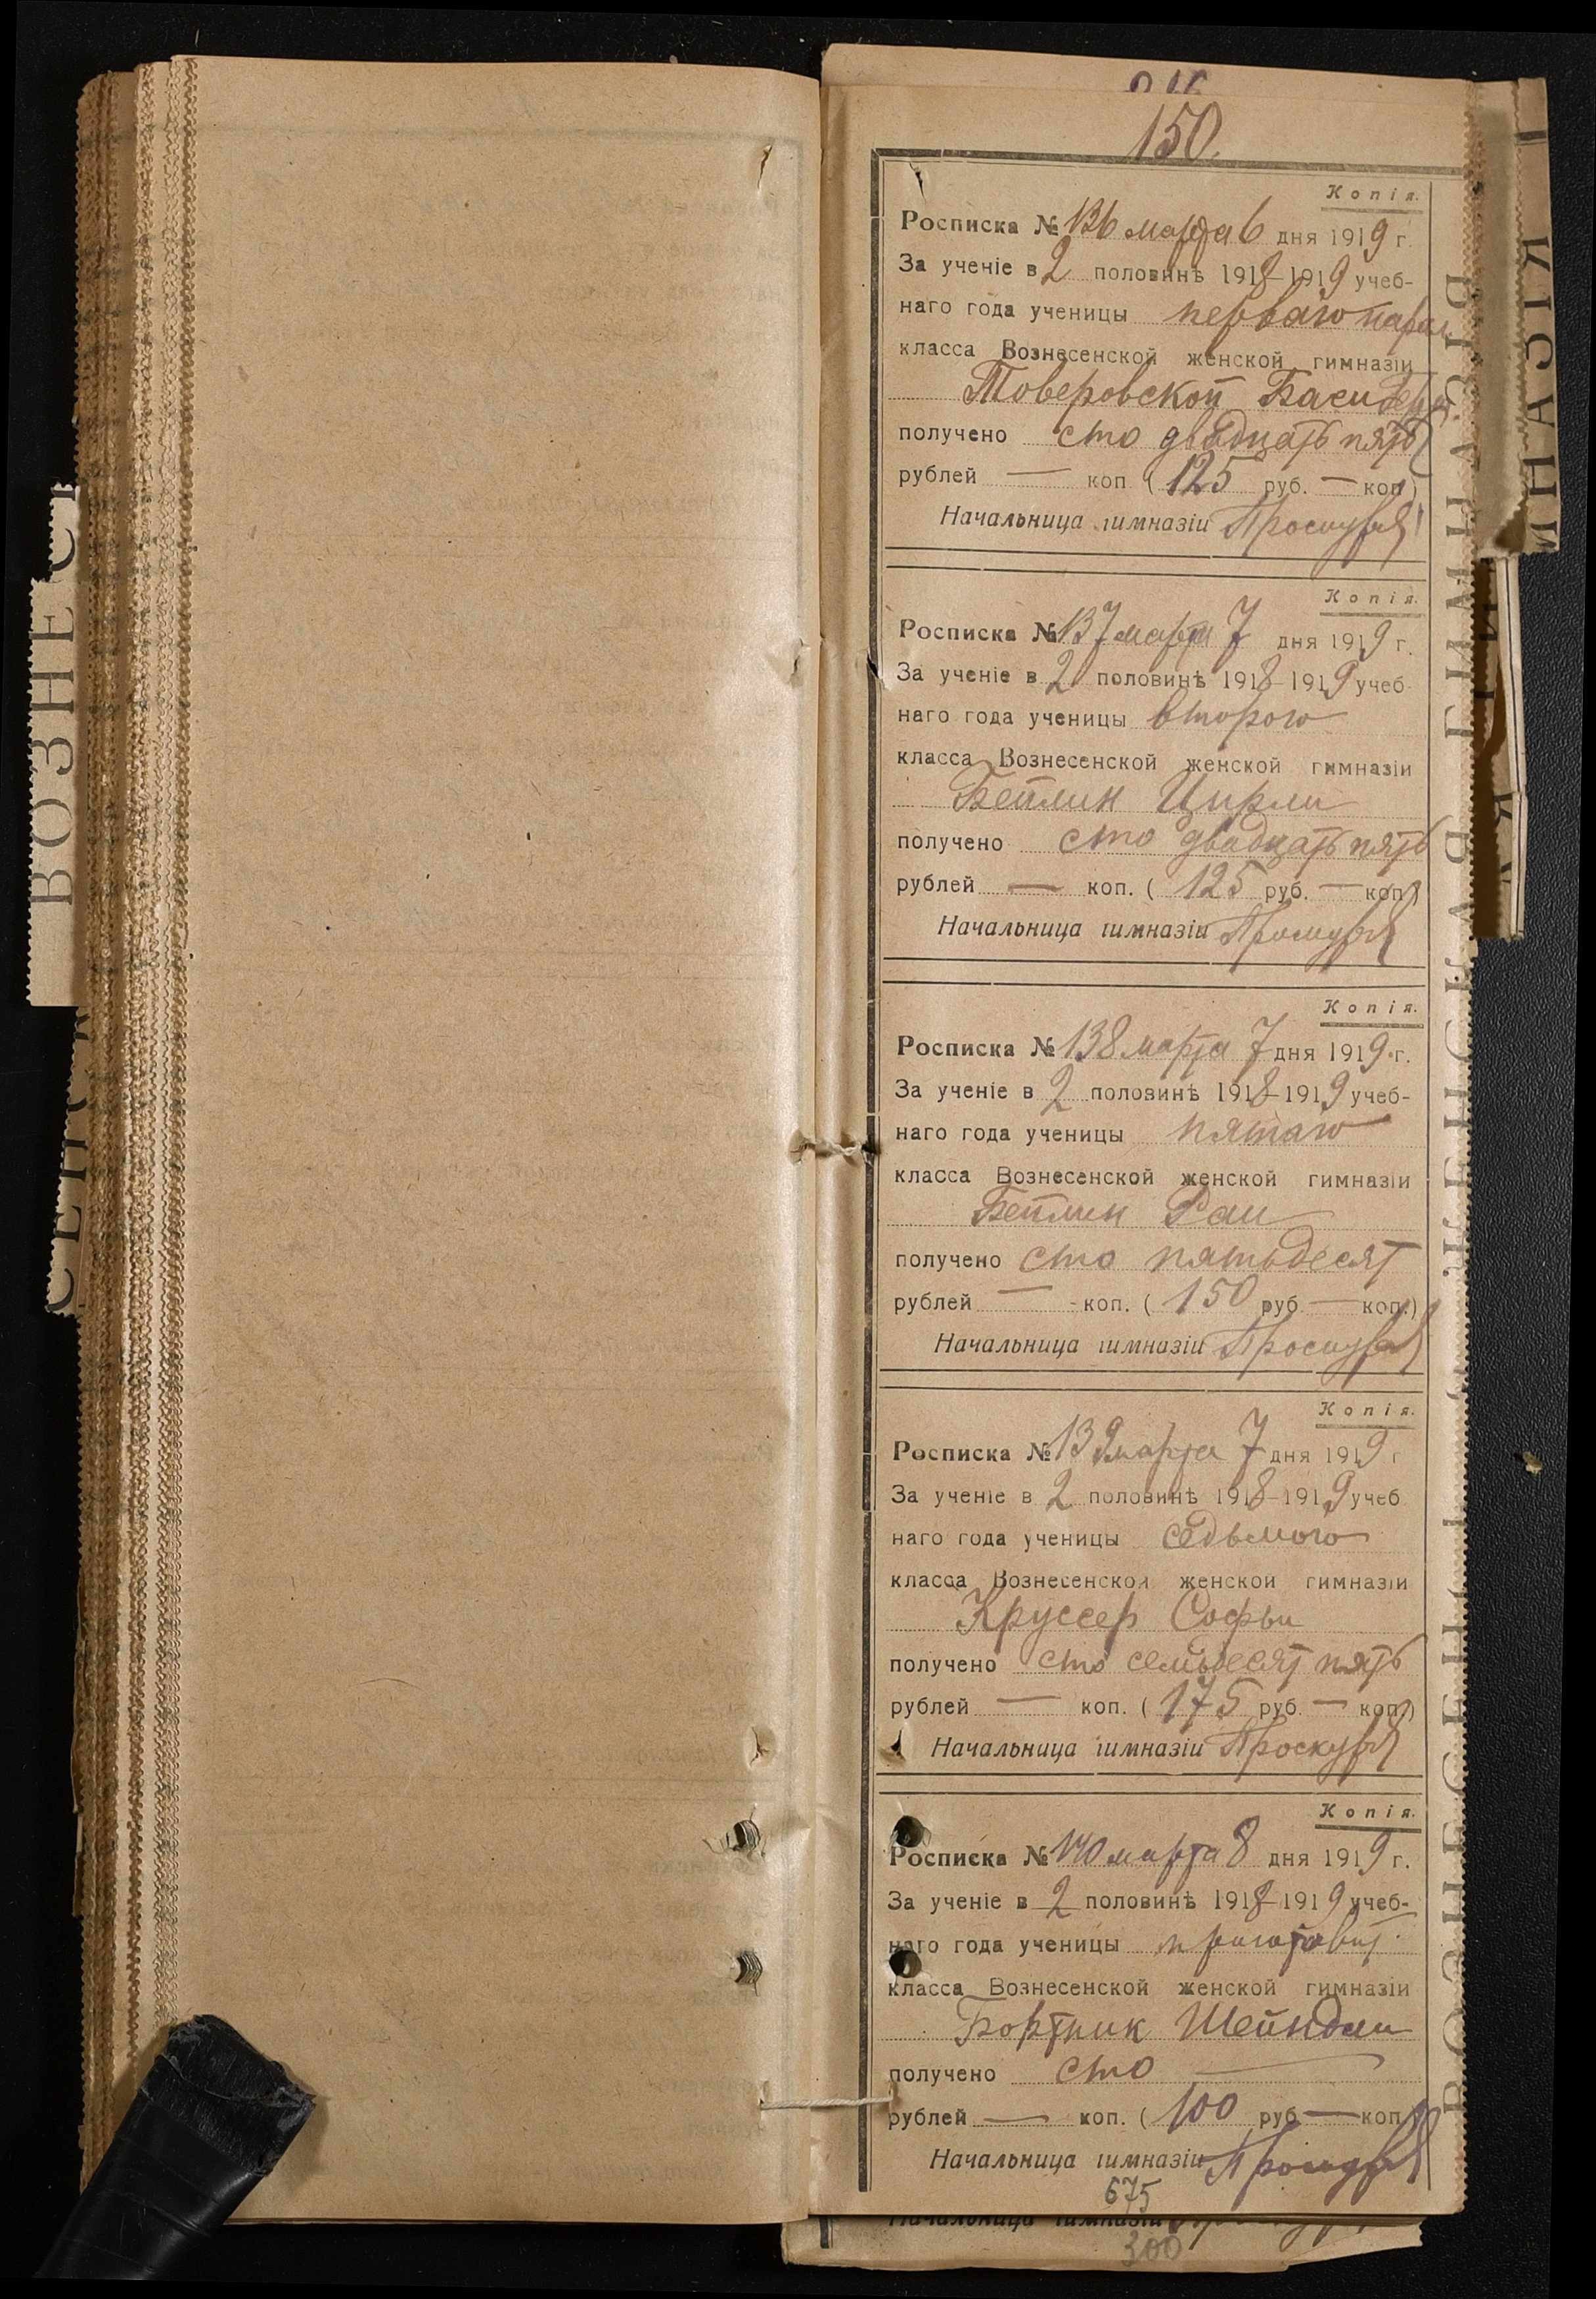 150.
Копія.
Росписка № 136 марта 6 дня 1919 г.
За ученіе в 2 половинѣ 1918-1919 учеб-
наго года ученицы перваго парал.
класса Вознесенской женской гимназіи
Товеровской Баси
получено сто двадцать пять
рублей — коп. (125 руб. — коп.)
Начальница гимназіи
Копія.
Росписка № 137 марта 7 дня 1919 г.
За ученіе в 2 половинѣ 1918-1919 учеб-
наго года ученицы второго
класса Вознесенской женской гимназіи
Бейлин Цирли
получено сто двадцать пять
рублей — коп. (125 руб. — коп.)
Начальница гимназіи
Копія.
Росписка № 138 марта 7 дня 1919 г.
За ученіе в 2 половинѣ 1918-1919 учеб-
наго года ученицы пятаго
класса Вознесенской женской гимназіи
Бейлин Раи
получено сто пятьдесят
рублей — коп. (150 руб. — коп.)
Начальница гимназіи
Копія.
Росписка № 139 марта 7 дня 1919 г
За ученіе в 2 половинѣ 1918-1919 учеб
наго года ученицы седьмого
класса Вознесенской женской гимназіи
Круссер Софьи
получено сто семьдесят пять
рублей — коп. (175 руб. — коп.)
Начальница гимназіи
Копія.
Росписка № 140 марта 8 дня 1919 г.
За ученіе в 2 половинѣ 1918-1919 учеб-
наго года ученицы приготовит.
класса Вознесенской женской гимназіи
Бортник Шейндли
получено сто —
рублей — коп. (100 руб — коп.)
Начальница гимназіи
675
Начальница гимназіи
300
ВОЗНЕС